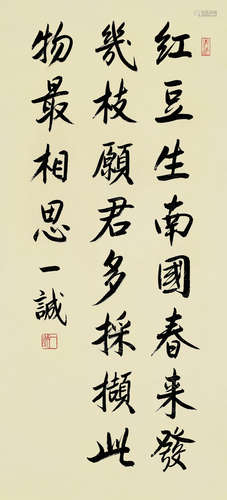 红豆生南國春来發
幾枝願君多採擷此
物最相思一誠